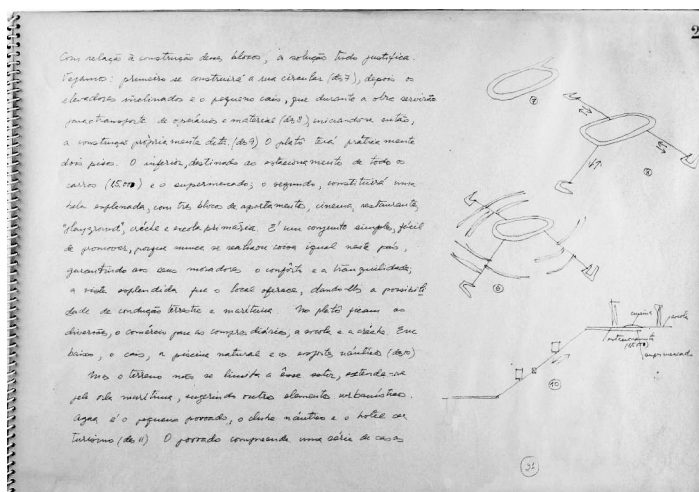 Com relação à construção desses blocos, a solução tudo justifica.
Vejamos: primeiro se construirá a rua circular (des 7), depois os
elevadores inclinados e o pequeno cais, que durante a obra servirão
para o transporte de operários e material (des 8) iniciandose então,
a construção pròpriamente dita. (des 9) O platô terá pràticamente
dois pisos. O inferior, destinado ao estacionamento de todos os
carros (15.000) e o supermercado; o segundo, constituirá uma
bela esplanada, com três blocos de apartamento, cinema, restaurante,
"playground", créche e escola primária. É um conjunto simples, fácil
de promover, porque nunca se realizou coisa igual neste país,
garantindo aos seus moradores o confôrto e a tranquilidade,
a vista esplendida que o local oferece, dando-lhes a possibili
dade de condução terrestre e marítima. No platô ficam as
diversões, o comércio para as compras diárias, a escola e a créche. Em
baixo, o cais, a piscina natural e os esportes náuticos (des 10)
Mas o terreno não se limita a êsse setor, estende-se
pela orla marítima, sugerindo outros elementos urbanísticos.
Agua é o pequeno povoado, o clube náutico e o hotel de
turismo (des 11) O povoado compreende uma série de casas
2
7
8
6
escola
estacionamento
(15.000)
supermercado
10
31